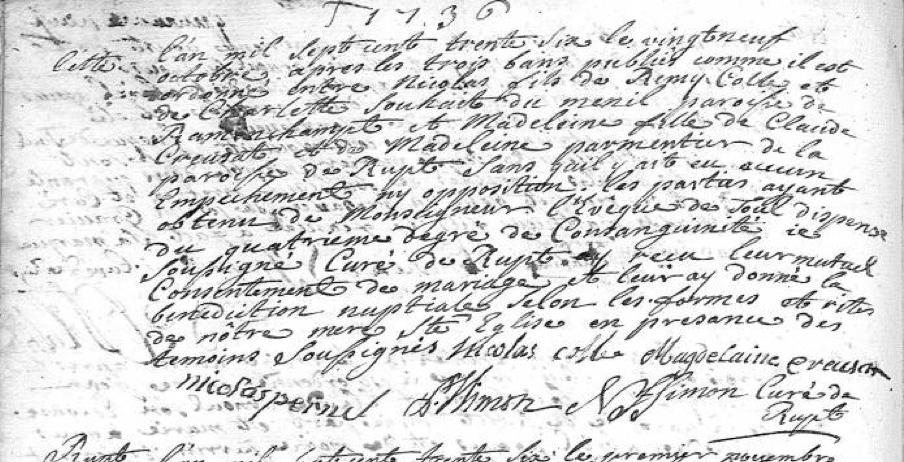 1736
L'an mil sept cent trente six le vingtneuf
octobre apres les trois bans publiés comme il est
ordonné entre Nicolas fils de Remy Colle et
de Charlotte Souhait du menil paroisse de
Ramonchampt et Madeleine fille de Claude
Creusat et de Madeleine parmentier de la
paroisse de Rupt sans quil y ait eu aucun
Empechement ny opposition. les parties ayant
obtenu de Monseigneur l'Evêque de Toul dispense
du quatrieme degré de Consanguinité ie
soussigné Curé de Rupt ay recu leur mutuel
Consentement de mariage et leur ay donné la
benediction nuptiale selon les formes et rites
de nôtre mere Ste Eglise en presance des
temoins soussignés Nicolas colle Magdelaine
nicolas pernel Simon N Simon Curé de
Rupt
Rupt L'an mil sept cent trente six le premier novembre